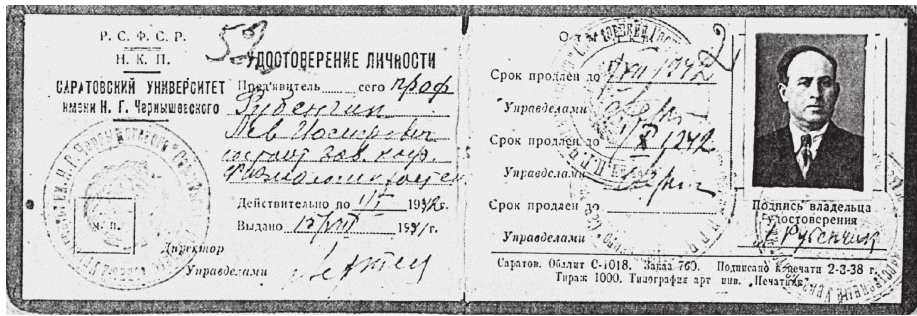 Р. С. Ф. С. Р.
Н. К. П.
САРАТОВСКИЙ УНИВЕРСИТЕТ
имени Н. Г. Чернышевского
УДОСТОВЕРЕНИЕ ЛИЧНОСТИ
Предъявитель сего проф
Рубенчик
Лев Иосифович
состоит зав. каф.
Физиологии растен
Действительно до 1/I 1942г.
Выдано 13/VIII 1941г.
М. П.
Директор
Управделами
Срок продлен до 1942
Управделами
Срок продлен до 1/X 1942
Управделами
Срок продлен до
Управделами
Подпись владельца
удостоверения
Рубенчик
Саратов. Обллит С-1018. Заказ 760. Подписано к печати 2-3-38 г.
Тираж 1000. Типография арт инв. „Печатник"